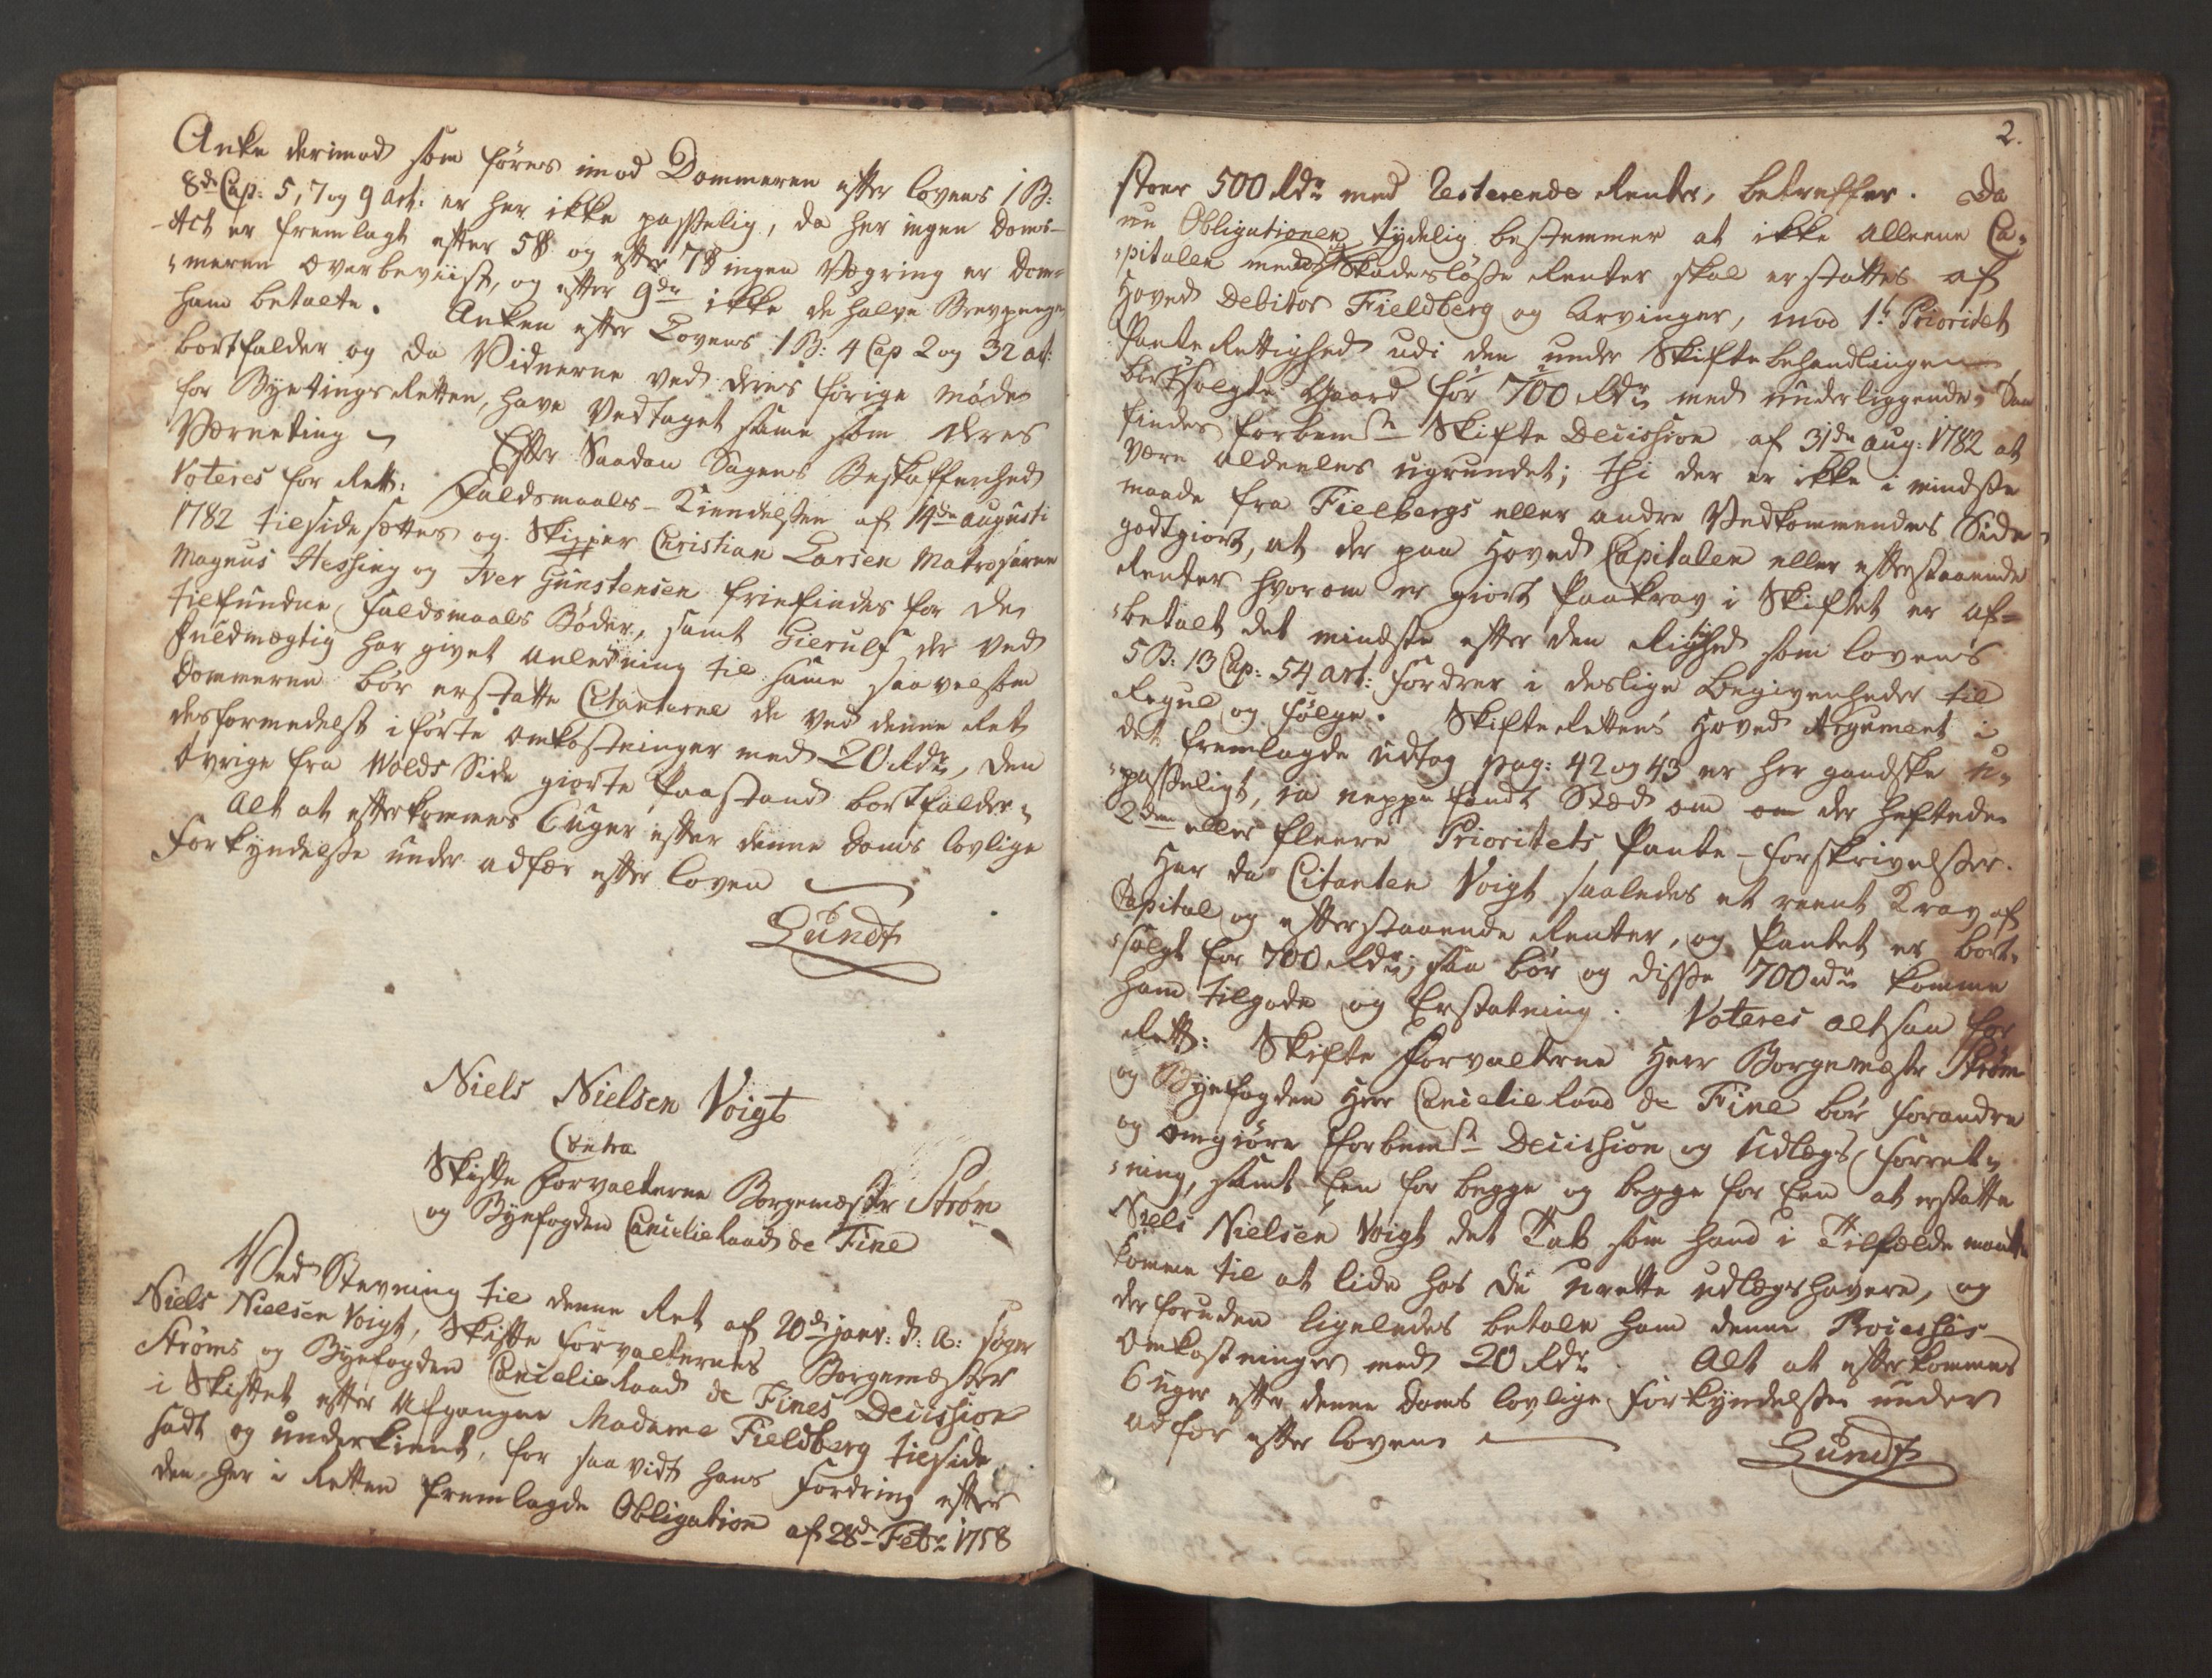 Anke derimod som føres imod Dommeren efter lovens 1 B:
8de Cap: 5, 7 og 9 art: er her ikke passelig, da her ingen Doms-
Act er fremlagt efter 5te og efter 7de ingen Vægring er Dom-
meren overbeviist, og efter 9de ikke de halve Brevpenge
ham betalte. Anken efter Lovens 1 B: 4 Cap 2 og 32 art:
bortfalder og da Vidnerne ved deres forige møde
for Byetings Retten, have vedtaget samme som deres
Værneting Efter Saadan Sagens Beskaffenhed
Voteres for Rett: Faldsmaals-Kiendelsen af 14de augusti
1782 tilsidesættes og Skipper Christian Larsen Matroserne
Magnus Hessing og Iver Gunstensen friefindes for de
tilfundne Faldsmaals Bøder, samt Gierulf der ved
Fuldmægtig har givet anledning til samme saavelsom
Dommeren bør erstatte Citanterne de ved denne Ret
desformedelst iførte Omkostninger med 20 Rdr, den
øvrige fra Wolds Side giorte Paastand bortfalder
Alt at efterkommes 6 uger efter denne Doms lovlige
Forkyndelse under adfær efter loven
Lundt
Niels Nielsen Voigt
Contra
Skifte Forvalterne Borgemæster Strøm
og Byefogden Cancelieraad de Fine
Ved Stevning til denne Ret af 20de janr: d: a: søger
Niels Nielsen Voigt, Skifte Forvalternes Borgemæster
Strøms og Byefogden Cancelieraad de Fines Decission
i Skiftet efter Afgangne Madame Fieldberg tilside
sadt og underkiendt, for saavidt hans Fordring efter
den her i Retten fremlagde Obligation af 28de Febr: 1758
2.
stoer 500 Rdr med Resterende Renter, betreffer. Da
nu Obligationen tydelig bestemmer at ikke alleene Ca-
pitalen men og Skadesløse Renter skal erstattes af
Hoved Debitor Fieldberg og Arvinger, mod 1te Prioritet
Pante Rettighed udi den under Skifte behandlingen
bortsolgte Gaard for 700 Rdr med underliggende; Saa
findes forbemte Skifte Decission af 31de aug: 1782 at
være aldeeles ugrundet; thi der er ikke i mindste
maade fra Fielbergs eller andre Vedkommendes Side
godtgiort, at der paa Hoved Capitalen eller efterstaaende
Renter hvorom er giort Paakrav i Skiftet er af-
betalt det mindste efter den Rigtighed som lovens
5 B: 13 Cap: 54 art: fordrer i deslige Begivenheder til
Regul og følge. Skifte Rettens Hoved Argument i
det fremlagde udtog pag: 42 og 43 er her gandske u-
passeligt, ia neppe fandt Stæd om om der heftede
2den eller fleere Prioritets Pante-forskrivelser.
Har da Citanten Voigt saaledes et reent Krav af
Capital og efterstaaende Renter, og Pantet er bort-
solgt for 700 Rdr; saa bør og disse 700 rdr komme
ham tilgode og Erstatning. Voteres altsaa for
Rett: Skifte Forvalterne Herr Borgemæster Strøm
og Byefogden Herr Cancelie Raad de Fine bør forandre
og omgiøre forbemte Decission og Udlægs forret-
ning, samt Een for begge og begge for Een at erstatte
Niels Nielsen Voigt det Tab som hand i Tilfælde maatte
komme til at lide hos de urette udlægshavere, og
desforuden ligeledes betale ham denne Processes
Omkostninger med 20 Rdr. Alt at efterkommes
6 uger efter denne Doms lovlige Forkyndelse under
adfær efter loven
Lundt